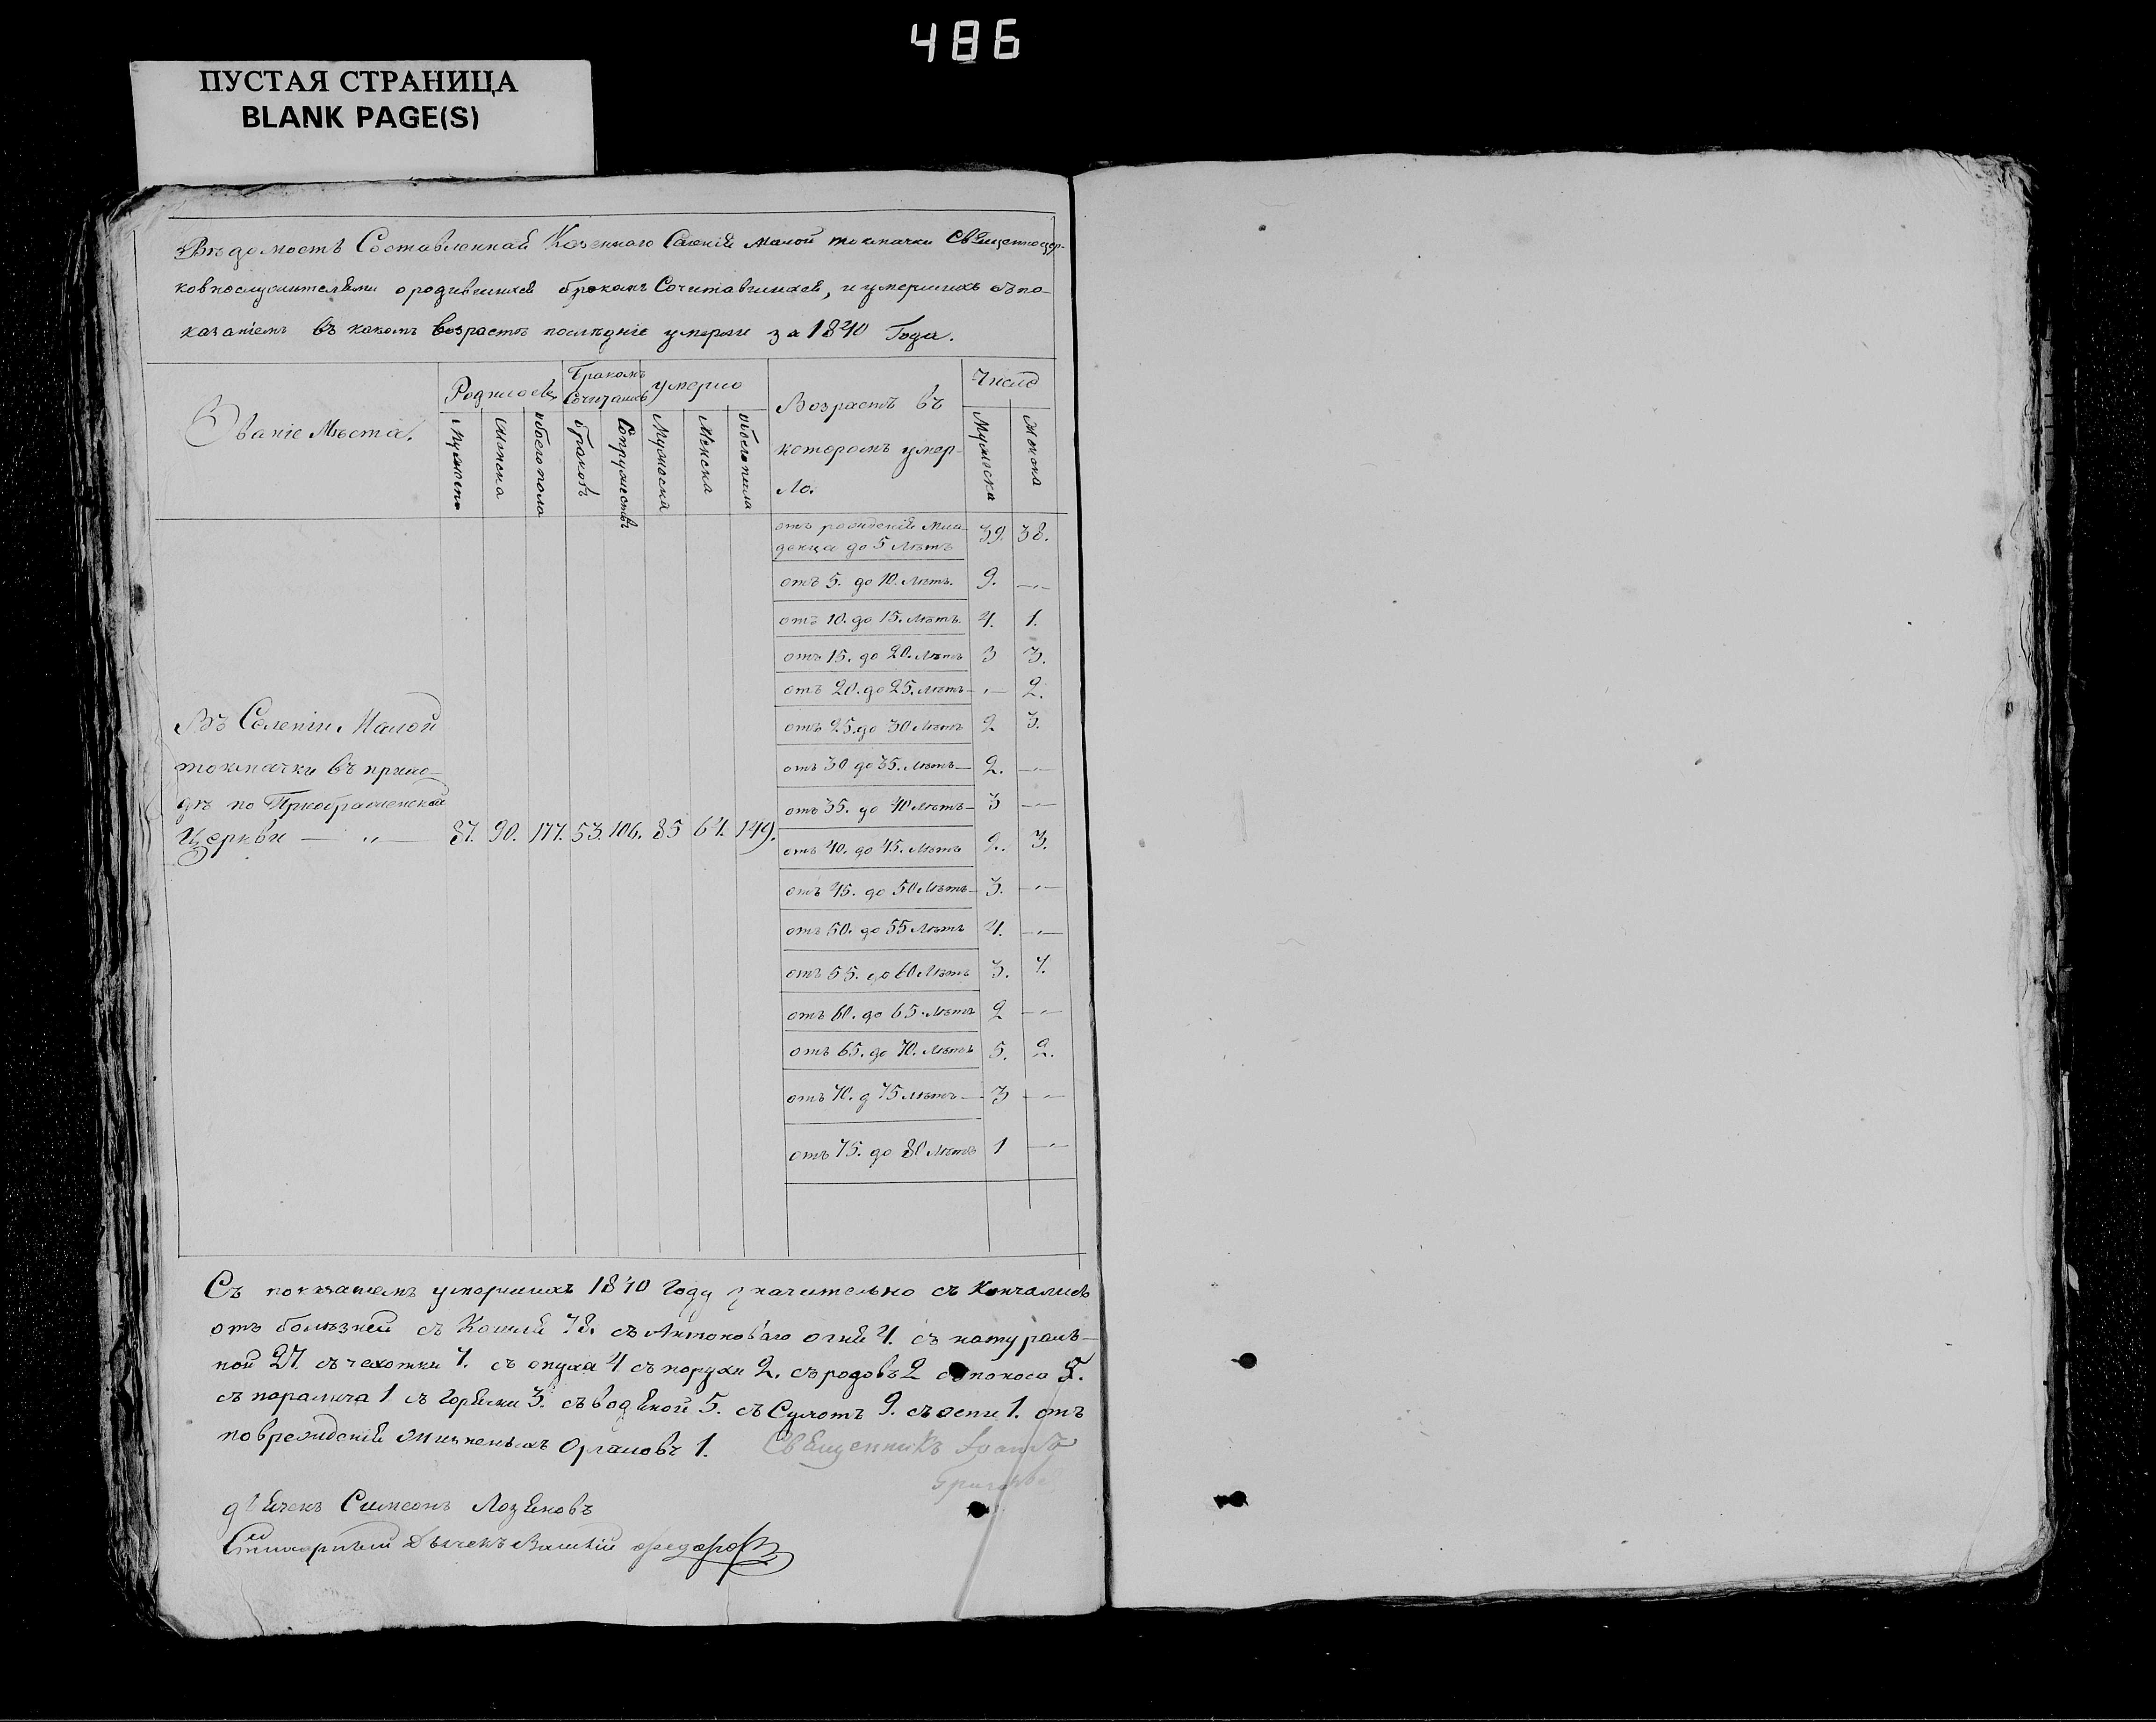 486
ПУСТАЯ СТРАНИЦА
BLANK PAGE(S)
Вѣдомость Составленная Казенного Селенія Малой токмачки Священноцер-
ковнослужителями о родившихся бракомъ Сочитавшихся, и умершихъ съ по-
казаніемъ въ какомъ возрастѣ послѣдніе умерли за 1840 Года.
Званіе Мѣста.
Родилось
Бракомъ Сочитались
умерло
Возрастъ въ которомъ умер-
ло.
Число
Мужеска
Женска
обоего пола
Браковъ
Супружествъ
Мужеска
Женска
обоего пола
Мужеска
Женска
отъ рожденія мла-
денца до 5 лѣтъ 39. 38.
отъ 5. до 10. лѣтъ. 9. —„—
отъ 10. до 15. лѣтъ. 4. 1.
отъ 15. до 20. лѣтъ 3 3.
отъ 20. до 25. лѣтъ —„— 2.
отъ 25. до 30 лѣтъ 2 3.
отъ 30 до 35. лѣтъ — 2. —„—
отъ 35. до 40 лѣтъ — 3 —„—
отъ 40. до 45. лѣтъ 2. 3.
отъ 45. до 50 лѣтъ — 3. —„—
отъ 50. до 55 лѣтъ 4. —„—
отъ 55. до 60 лѣтъ 3.
отъ 60. до 65. лѣтъ 2 —„—
отъ 65. до 70. лѣтъ 5. 2.
отъ 70. д 75 лѣтъ — 3 —„—
отъ 75. до 80 лѣтъ 1 —„—
Въ Селеніи Малой
токмачки въ прихо-
дѣ по Преображенской
Церкви — „ — 87. 90. 177. 53. 106. 85 64. 149.
Съ показаніемъ умершихъ 1840 Году значительно съ Кончались
отъ болѣзней съ Кашля 78. съ Антоноваго огня 4. съ натураль-
ной 27. съ чахотки съ опуха 4 съ порухи 2. съ родовъ 2 поноса
съ паралича 1 съ Горячки 3. съ водяной 5. съ Сухотъ 9. съ оспи 1. отъ
поврежденія жизненыхъ Органовъ 1. Священникъ Іоаннъ
дьячекъ Симеонъ
Дьячекъ Федоровъ